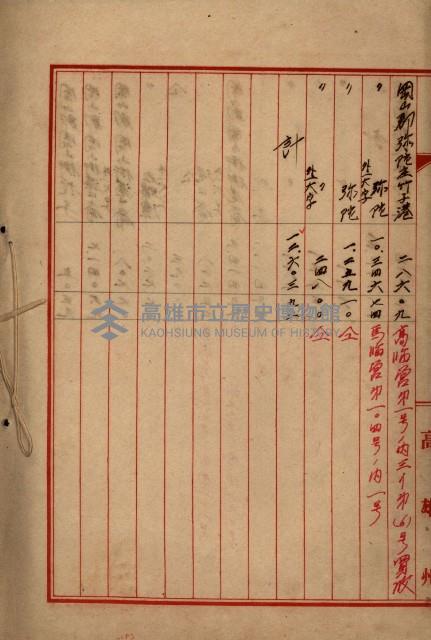 岡山郡弥陀庄竹子港 二八六〇九 高臨営第一号ノ内三イ第(6)号買収
〃 弥陀外一大字 一〇三四六七四 馬臨営第一〇四号ノ内一号
〃 弥陀 一二五九一〇 仝
〃 〃外一大字 二四八〇〇 仝
計 一二六〇三九三
高雄州
高雄市立歷史博物館
KAOHSIUNG MUSEUM OF HISTORY